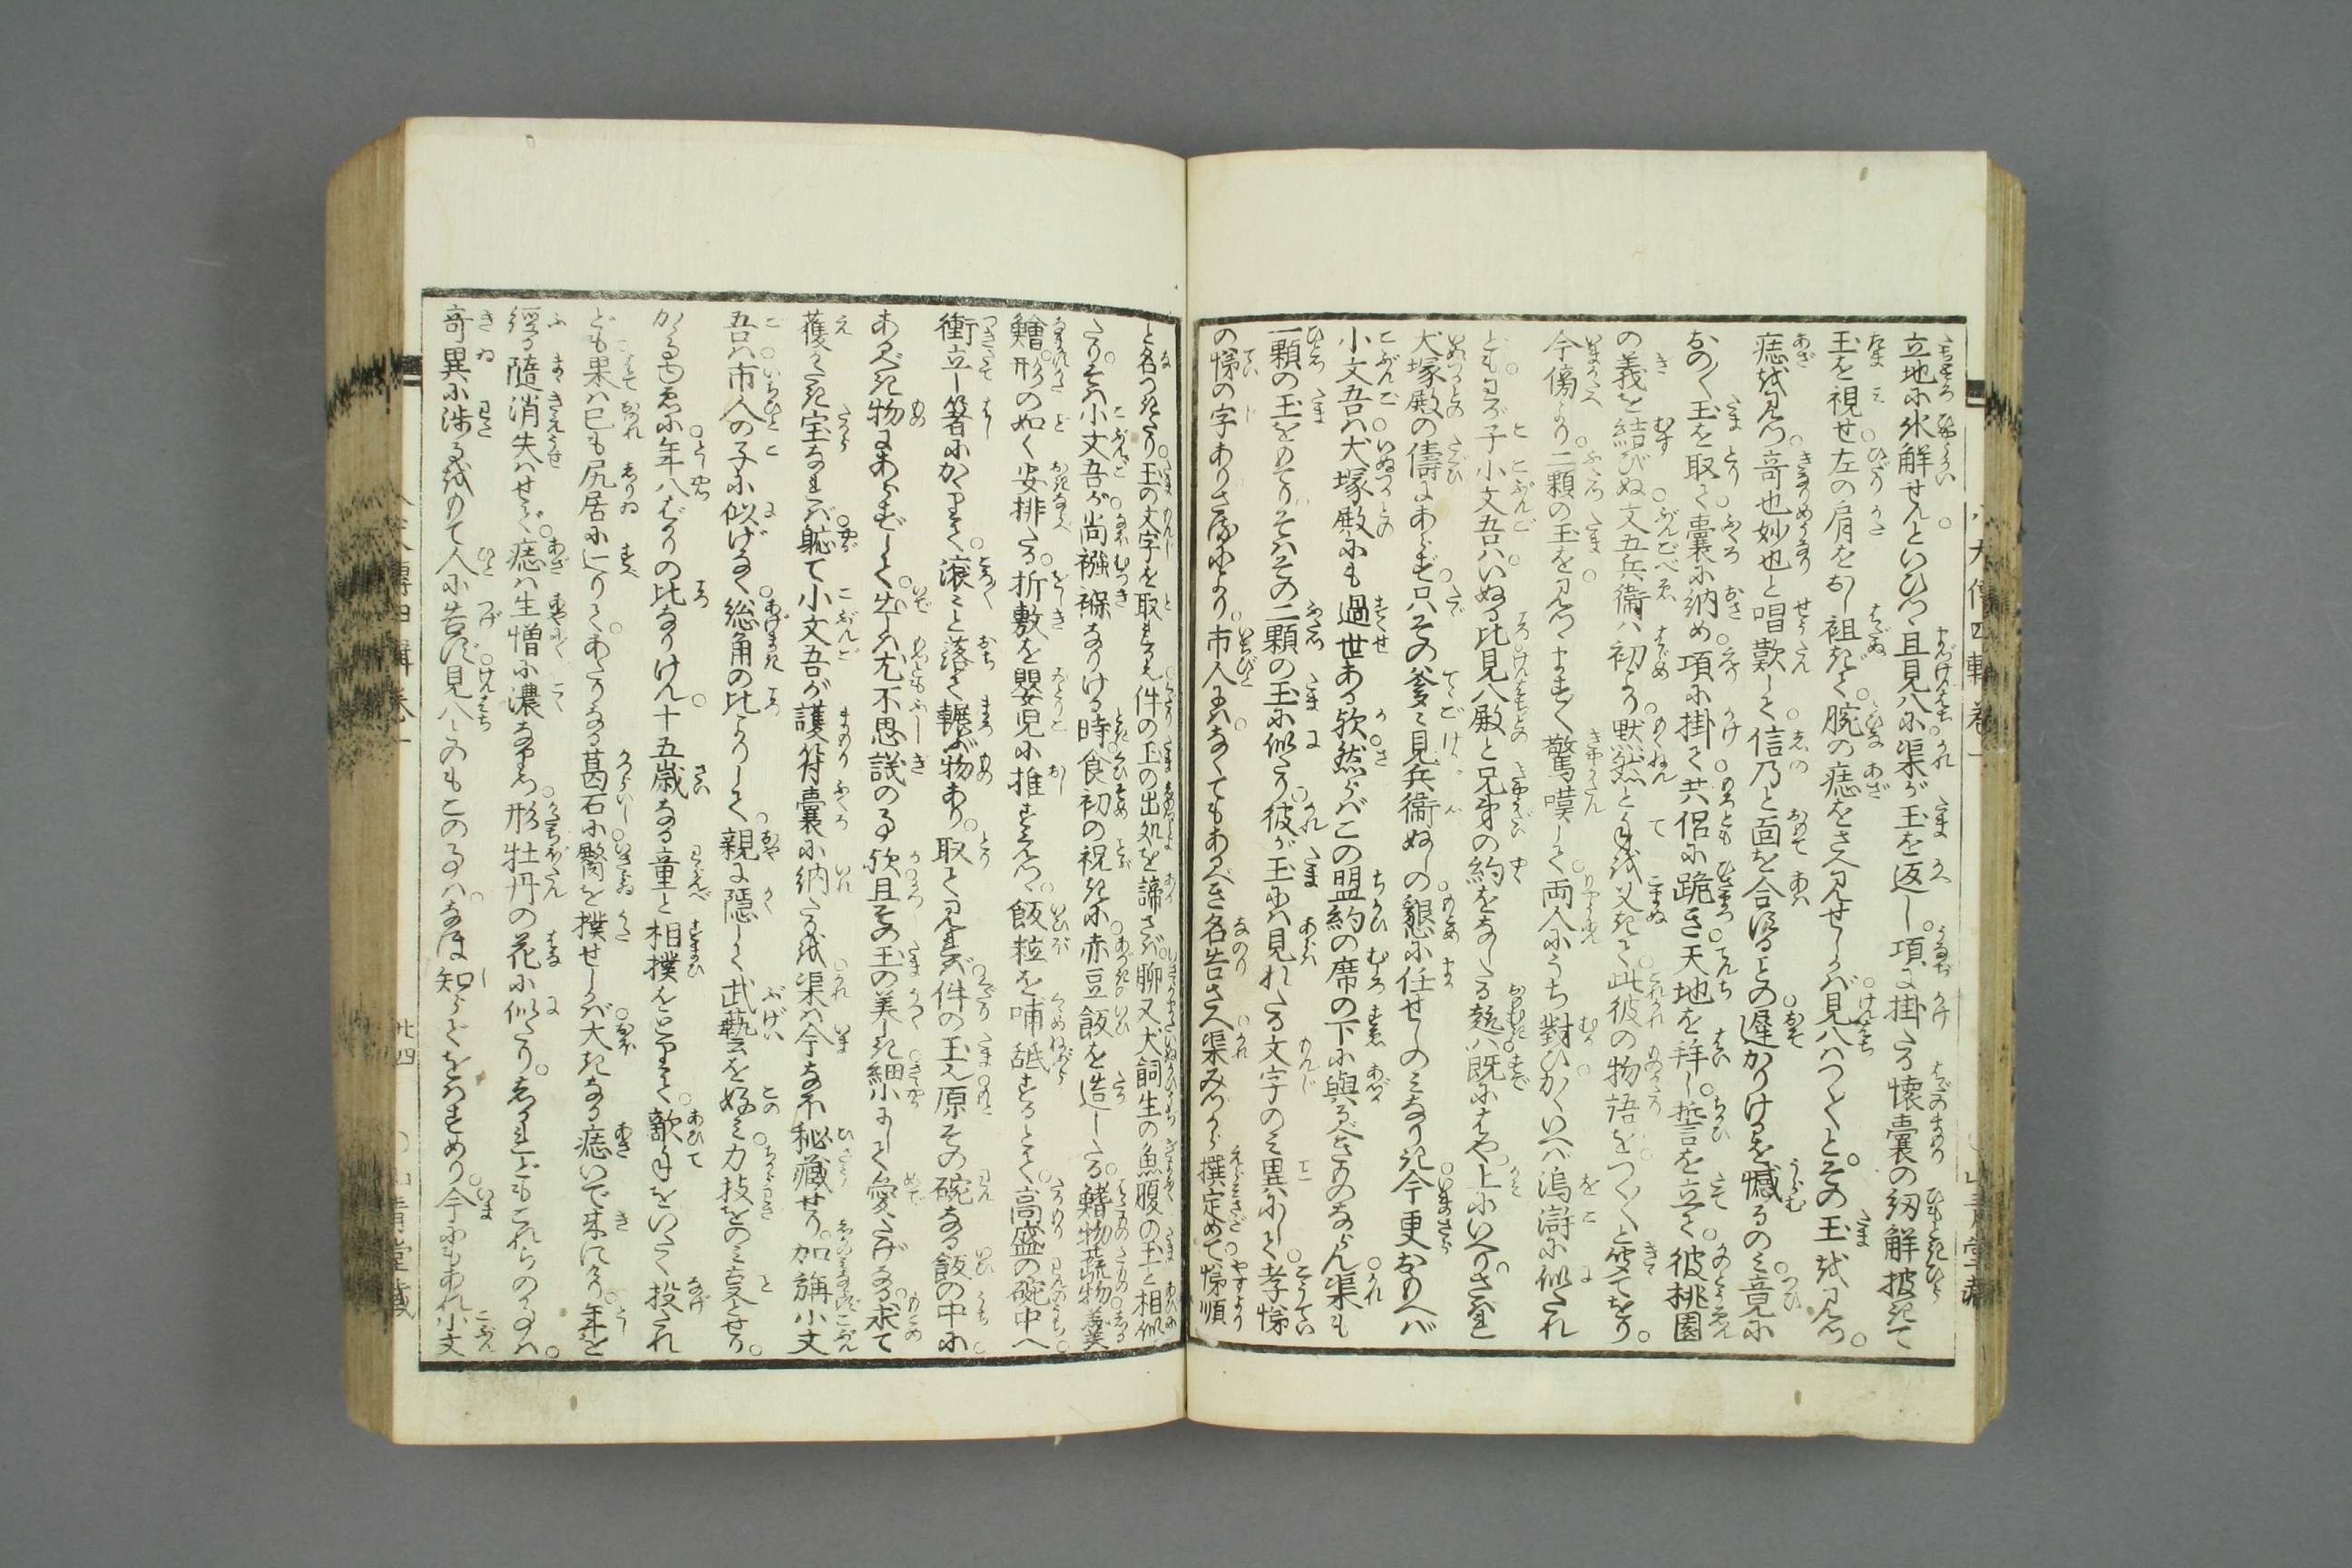 立地に氷解せんといひつゝ且見八に渠が玉を返し。項に掛たる懐嚢の紐解披きて
玉を視せ左の肩をおし袒ぎて。腕の痣をさへ見せしかば見八はつく〴〵とその玉を見つ。
痣を見つ。奇也妙也と唱歎しく信乃と面を合しつゝ遅かりけるを憾るのみ竟に
おの〳〵玉を取て嚢に納め項に掛て共侶に跪き天地を拝し。誓を立て。彼桃園
の義を結びぬ文五兵衛は初より。黙然と手を叉きて。此彼の物語をつく〴〵と聞てをり。
今傍より二顆の玉を見つゝます〳〵驚嘆しく両人にうち對ひかくいへば滸に似たれ
ども。わが子小文吾はいぬる比見八殿と兄弟の約をなしたる趣は既にはや。上にいへり。されど
犬塚殿の儔にあらず。只その爹々見兵衛ぬしの懇に任せしのみなりき今更おもへば
小文吾は犬塚殿にも過世ある歟然らばこの盟約の席の下に與るべきものならん渠も
一顆の玉をもてりそはその二顆の玉に似たり。彼が玉には見れたる文字のみ異にして孝悌
の悌の字ありさるにより。市人にはなくてもあるべき名告さへ渠みづから撰定めて悌順
と名つきたり。玉の文字を取れるもの件の玉の出処を諦さば聊又犬飼生の魚腹の玉と相似
たり。そは小文吾が尚襁褓なりける時食初の祝きに赤豆飯を造したる鰭物蔬物羹
鱠。形の如く安排たる。折敷を嬰児に推すえつゝ。飯粒を哺舐するとて。高盛の碗中へ
衝立し箸にかゝりて。滾々と落て輾ぶ物あり。取て見れば件の玉也原その碗なる飯の中に
あるべき物にあらずして。出しは尤不思議の事歟且その玉の美しき細小にして愛たげなる。求て
獲がたき宝なれば。軈て小文吾が護符嚢に納たるを渠は今なほ秘蔵せり。加旃小文
吾は市人の子に似げなく。総角の比よりして。親に隠して武藝を好み力技をのみ良とせり。
かゝるゆゑに年八ばかりの比なりけん。十五歳なる童と相撲をとりて敵手をいたく投たれ
ども果は己も尻居に辷りて。あたりなる葛石に臀を撲せしかば大きなる痣いで来にけり年を
經る隨消失はせで。痣は生憎に濃なりつ。形牡丹の花に似たり。されどもこれらの事は
奇異に渉るをもて人に告げず見八どのもこの事は。なほ知らでをはすめり。今にもあれ小文